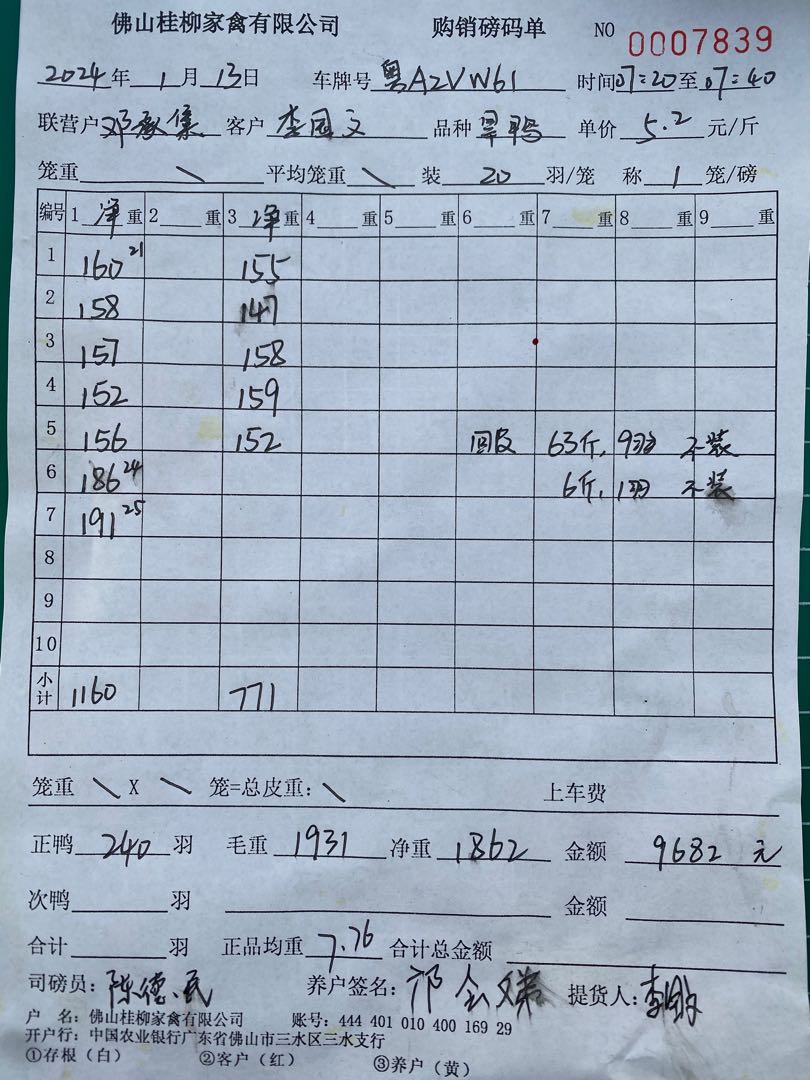 佛山桂柳家禽有限公司 购销磅码单 NO 0007839
2024年 1月 13日 车牌号 粤A2VW61 时间07:20至07:40
联营户 邓 集 客户 李国文 品种 单价 5.2 元/斤
笼重 \ 平均笼重 \ 装 20 羽/笼 称 1 笼/磅
编号 1 净 重 2 重 3 净 重 4 重 5 重 6 重 7 重 8 重 9 重
1 160 21 155
2 158 147
3 157 158
4 152 159
5 156 152 回皮 63斤, 9羽 不装
6 186 24 6斤, 1羽 不装
7 191 25
8
9
10
小计 1160 771
笼重 \ X \ 笼=总皮重: \ 上车费
正鸭 240 羽 毛重 1931 净重 1862 金额 9682 元
次鸭 羽 金额
合计 羽 正品均重 7.76 合计总金额
司磅员: 陈德民 养户签名: 提货人:
户 名: 佛山桂柳家禽有限公司 账号: 444 401 010 400 169 29
开户行: 中国农业银行广东省佛山市三水区三水支行
①存根(白) ②客户(红) ③养户(黄)